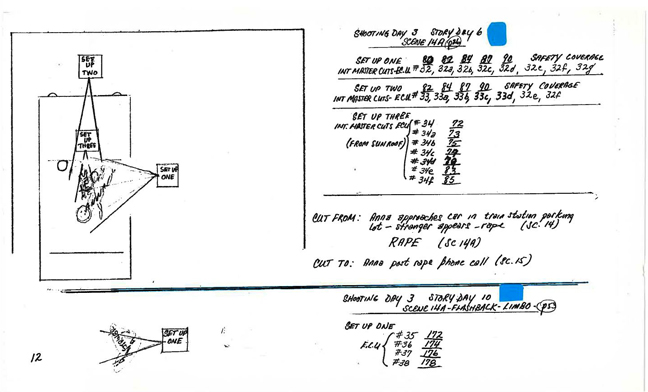 SHOOTING DAY 3 STORY DAY 6
SCENE 14A
SET UP ONE 80 82 84 87 90 SAFETY COVERAGE
INT MASTER CUTS-E.C.U. # 32, 32a, 32b, 32c, 32d, 32e, 32f, 32g
SET UP TWO 82 84 87 90 SAFETY COVERAGE
INT MASTER CUTS- E.C.U # 33, 33a, 33b, 33c, 33d, 32e, 32f
SET UP THREE
INT. MASTER CUTS ECU
(FROM SUNROOF)
# 34 72
# 34a 73
# 34b 75
# 34c
# 34d
# 34e 83
# 34f 85
SET UP TWO
SET UP THREE
SET UP ONE
CUT FROM: Anna approaches car in train station parking
lot - stranger appears - rape (SC. 14)
RAPE (SC 14A)
CUT TO: Anna post rape phone call (SC. 15)
SHOOTING DAY 3 STORY DAY 10
SCENE 14A-FLASHBACK-LIMBO- p53
SET UP ONE
E.C.U
#35 172
#36 174
#37 176
#38 178
SET UP ONE
12